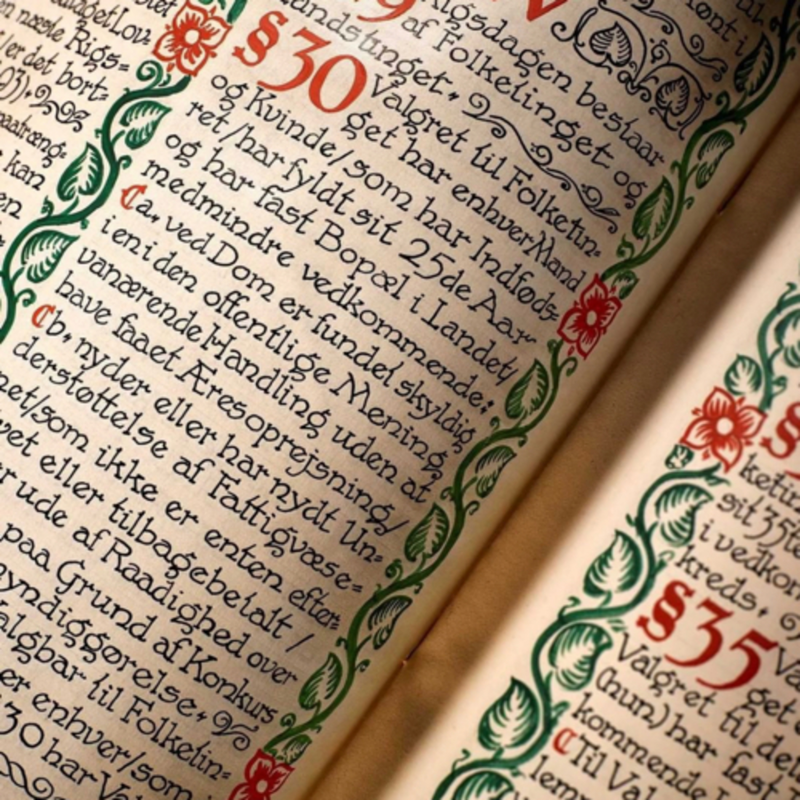 ungetLov
en næste Rigs=
/er det bort=
03)).
paatræng=
kan
en
Rigsdagen bestaar
af Folketinget og
Landstinget.
§30 Valgret til Folketin=
get har enhver Mand
og Kvinde/som har Indføds=
ret/har fyldt sit 25de Aar
og har fast Bopæl i Landet/
medmindre vedkommende:
a, ved Dom er fundet skyldig
i en i den offentlige Mening
vanærende Handling uden at
have faaet Æresoprejsning/
b, nyder eller har nydt Un=
derstøttelse af Fattigvæse=
net/som ikke er enten efter=
vet eller tilbagebetalt/
r ude af Raadighed over
paa Grund af Konkurs
yndiggørelse.
algbar til Folketin=
er enhver/som i
30 har Val
§
ketin
sit 35te
i vedkom
kreds.
§35 Va
get
Valgret til de
(hun) har fast
kommende
Til Val
lem